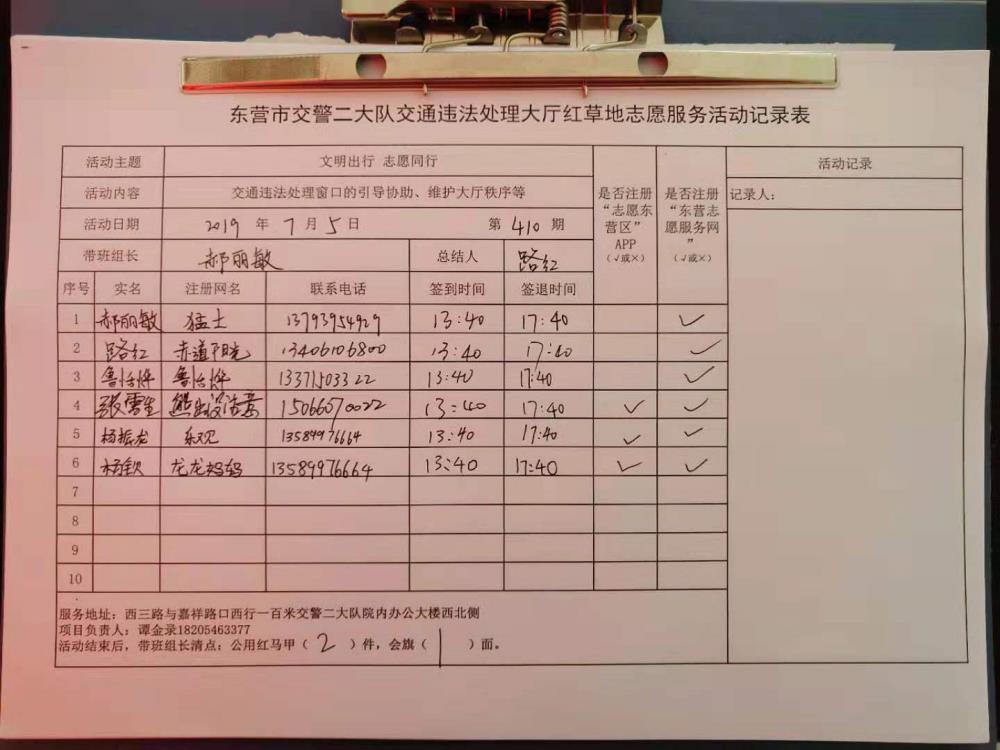 东营市交警二大队交通违法处理大厅红草地志愿服务活动记录表
活动主题 文明出行 志愿同行 活动记录
活动内容 交通违法处理窗口的引导协助、维护大厅秩序等 是否注册“志愿东营区”APP（√或×） 是否注册“东营志愿服务网”（√或×） 记录人：
活动日期 2019 年 7 月 5 日 第 410 期
带班组长 郝丽敏 总结人 路红
序号 实名 注册网名 联系电话 签到时间 签退时间
1 郝丽敏 猛士 13793954929 13:40 17:40 ✓
2 路红 赤道阳光 13406106800 13:40 17:40 ✓
3 鲁恬烨 鲁恬烨 13371503322 13:40 17:40 ✓
4 张雪生 熊出没注意 15066070022 13:40 17:40 ✓ ✓
5 杨振龙 乐观 13589976664 13:40 17:40 ✓ ✓
6 杨钦 龙龙妈妈 13589976664 13:40 17:40 ✓ ✓
7
8
9
10
服务地址：西三路与嘉祥路口西行一百米交警二大队院内办公大楼西北侧
项目负责人：谭金录18205463377
活动结束后，带班组长清点：公用红马甲（ 2 ）件，会旗（ 1 ）面。